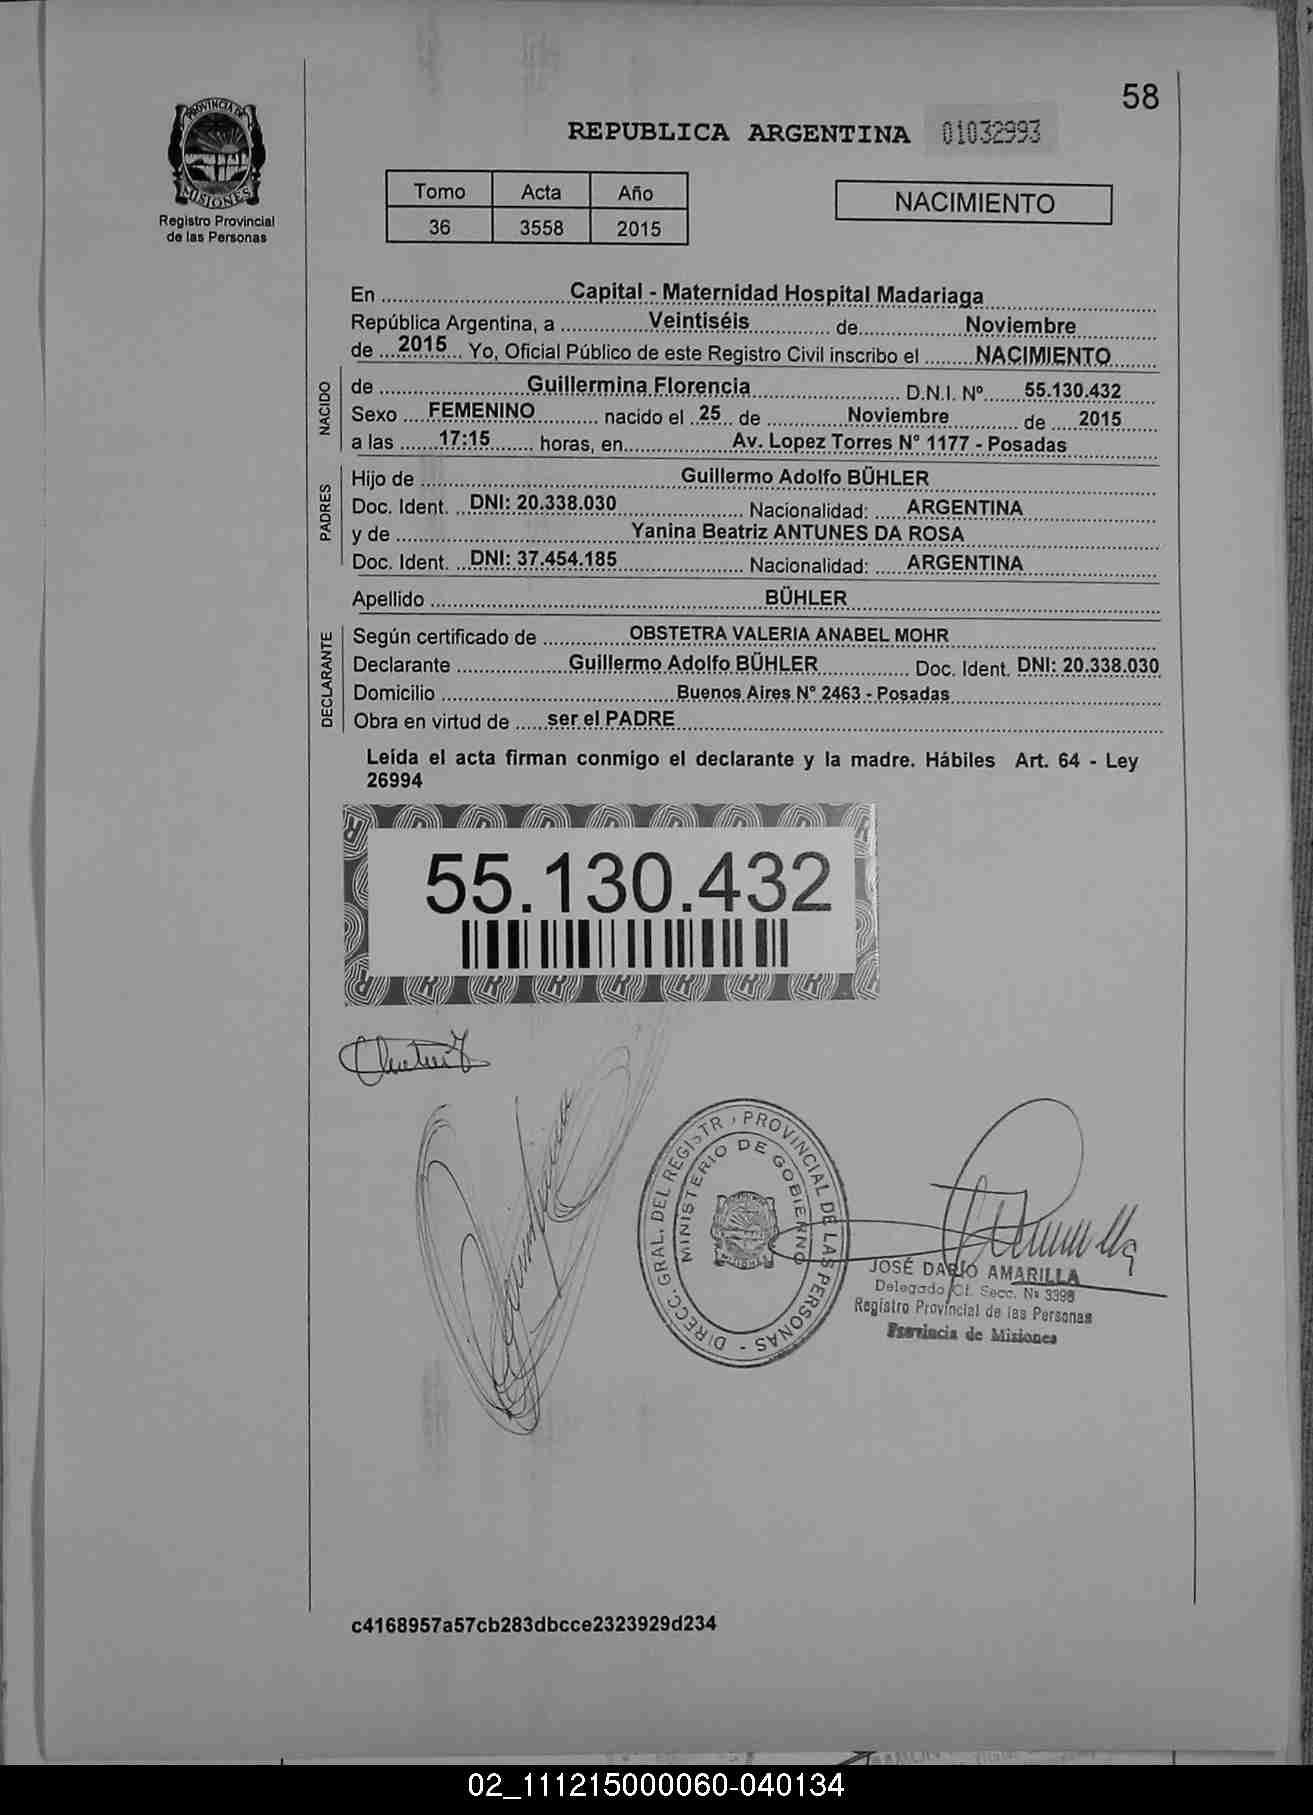 58
PROVINCIA DE
MISIONES
Registro Provincial
de las Personas
REPUBLICA ARGENTINA 01032993
Tomo Acta Año
36 3558 2015
NACIMIENTO
En Capital - Maternidad Hospital Madariaga
República Argentina, a Veintiséis de Noviembre
de 2015 Yo, Oficial Público de este Registro Civil inscribo el NACIMIENTO
NACIDO
de Guillermina Florencia D.N.I. Nº 55.130.432
Sexo FEMENINO nacido el 25 de Noviembre de 2015
a las 17:15 horas, en Av. Lopez Torres N° 1177 - Posadas
PADRES
Hijo de Guillermo Adolfo BÜHLER
Doc. Ident. DNI: 20.338.030 Nacionalidad: ARGENTINA
y de Yanina Beatriz ANTUNES DA ROSA
Doc. Ident. DNI: 37.454.185 Nacionalidad: ARGENTINA
Apellido BÜHLER
DECLARANTE
Según certificado de OBSTETRA VALERIA ANABEL MOHR
Declarante Guillermo Adolfo BÜHLER Doc. Ident. DNI: 20.338.030
Domicilio Buenos Aires N° 2463 - Posadas
Obra en virtud de ser el PADRE
Leída el acta firman conmigo el declarante y la madre. Hábiles Art. 64 - Ley
26994
55.130.432
DIRECC. GRAL. DEL REGISTR PROVINCIAL DE LAS PERSONAS -
MINISTERIO DE GOBIERNO
JOSÉ DARÍO AMARILLA
Delegado Cf. Secc. Nº 3398
Registro Provincial de las Personas
Provincia de Misiones
c4168957a57cb283dbcce2323929d234
02_111215000060-040134